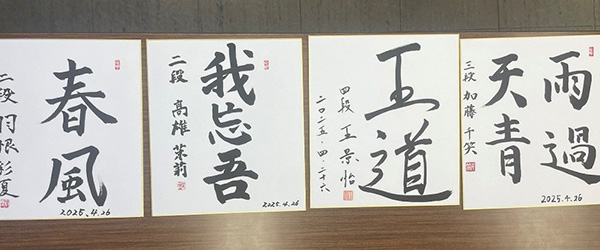 春風
二段
2025.4.26
我忘吾
二段 高雄 茉莉
2025.4.26
王道
四段 王景怡
二〇二五・四・二十六
雨過
天青
三段 加藤 千笑
2025.4.26